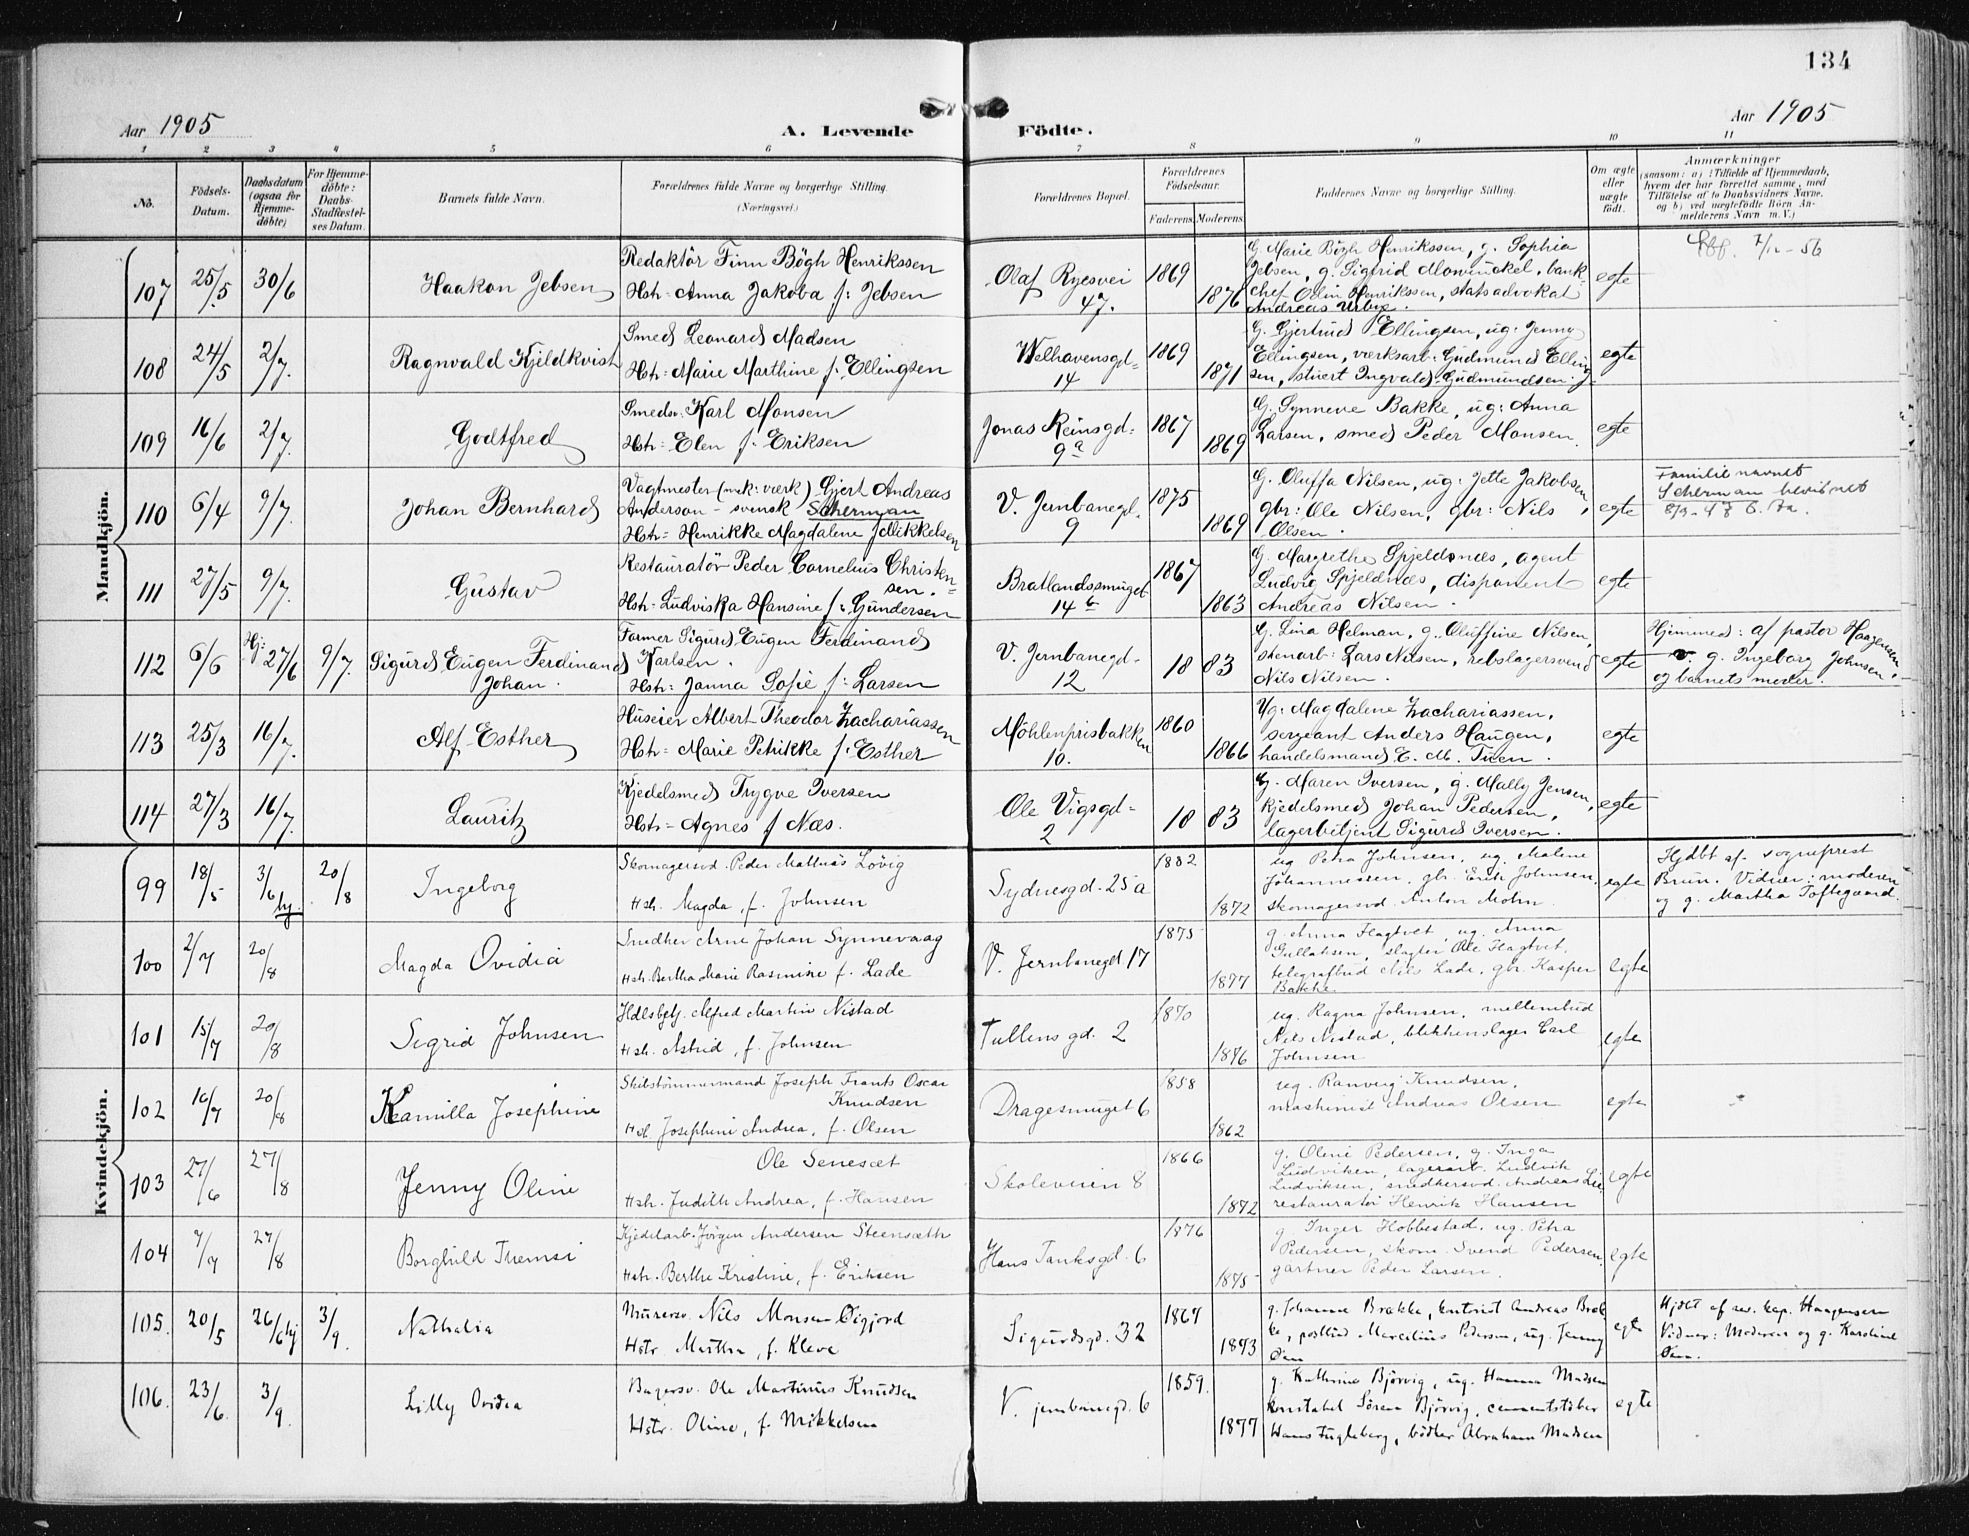 134
Aar 1905
A. Levende Födte.
Aar 1905
1 2 3 4 5 6 7 8 9 10 11
No.
Födsels-Datum.
Daabsdatum (ogsaa for Hjemme-döbte)
For Hjemme-döbte: Daabs-Stadfæstel-ses Datum.
Barnets fulde Navn.
Forældrenes fulde Navne og borgerlige Stilling.
(Næringsvei.)
Forældrenes Bopæl.
Forældrenes Födselsaar.
Faderens Moderens
Faddernes Navne og borgerlige Stilling.
Om ægte eller uægte födt.
Anmærkninger
(saasom: a) i Tilfælde af Hjemmedaab,
hvem der har forrettet samme, med
Tilföielse af to Daabsvidners Navne,
og b) ved uægtefödte Börn An-
melderens Navn m. V.)
Mandkjön.
107 25/5 30/6 Haakon Jebsen
Redaktör Finn Bögh Henrikssen
Hstr: Anna Jakoba f: Jebsen
Olaf Ryesvei 47. 1869 1876
G. Marie Bögh Henrikssen, g. Sophia
Jebsen, g. Sigfrid Mowinckel, bank-
chef Odin Henrikssen, statsadvokat
Andreas Urbye.
egte
7/12-56
108 24/5 2/7. Ragnvald Kjeldkvist
Smed Leonard Madsen
Hstr: Marie Marthine f: Ellingsen
Welhavensgd= 14 1869 1871
G. Gjertrud Ellingsen, ug: Jenny
Ellingsen, værksarb: Gudmund Elling-
sen, stuert Ingvald Gudmundsen
egte
109 16/6 2/7. Godtfred
Smedsv: Karl Monsen
Hstr: Elen f: Eriksen
Jonas Reinsgd: 9a 1867 1869
G. Synneve Bakke, ug: Anna
Larsen, smed Peder Monsen.
egte
110 6/4 9/7. Johan Bernhard
Vagtmester (mek: værk) Gjert Andreas
Anderson - svensk Scherman
Hstr: Henrikke Magdalene f. Mikkelsen
V. Jernbanegd. 9 1875 1869
G. Oluffa Nilsen, ug: Jette Jakobsen,
gbr: Ole Nilsen, gbr: Nils
Olsen.
egte
Familienavnet
Scherman bevilget
111 27/5 9/7. Gustav
Restauratör Peder Cornelius Christen-
sen.
Hstr: Ludviska Hansine f: Gundersen
Bratlandssmuget 14b 1867 1863
G. Margrethe Spjeldnæs, agent
Ludvig Spjeldnæs, disponent
Andreas Nilsen.
egte
112 6/6 Hj: 27/6 9/7. Sigurd Eugen Ferdinand
Johan.
Former Sigurd Eugen Ferdinand
Karlsen.
Hstr: Janna Sofie f: Larsen
V. Jernbanegd- 12 18 83
G. Lina Helman, g. Oluffine Nilsen,
stenarb: Lars Nilsen, rebslagersvend
Nils Nilsen.
egte
Hjemmed: af pastor Haagensen
v. g. Ingeborg Johnsen,
og barnets moder.
113 25/3 16/7. Alf Esther
Huseier Albert Theodor Zachariassen
Hstr: Marie Petrikke f: Esther
Möhlenprisbakken 10. 1860 1866
Ug: Magdalene Zachariassen,
sergeant Anders Haugen,
handelsmand E. M. Tuen.
egte
114 27/3 16/7. Lauritz
Kjedelsmed Trygve Iversen
Hstr: Agnes f Næs.
Ole Vigsgd- 2 18 83
G. Maren Iversen, g. Mally Jensen,
kjedelsmed Johan Pedersen,
lagerbetjent Sigurd Iversen.
egte
Kvindekjön.
99 18/5 3/6 hj. 20/8 Ingeborg
Skomagersvd. Peder Mathias Lövig
Hstr. Magda, f. Johnsen
Sydnesgd. 25a 1882 1872
ug Petra Johnsen, ug. Malene
Johannessen, gbr. Erik Johnsen,
skomagersvd. Anton Mohn.
egte
Hjdbt af sogneprest
Brun. Vidner: moderen
og g. Martha Toftegaard.
100 2/7 20/8 Magda Ovidia
Snedker Arne Johan Synnevaag
Hstr. Bertha Marie Rasmine f. Lade
V. Jernbanegd 17 1875 1877
g. Anna Hagtvet, ug. Anna
Gullaksen, slagter Ole Hagtvet,
telegrafbud Nils Lade, gbr. Kasper
Bakke.
egte
101 15/7 20/8 Sigrid Johnsen
Hdlsbetj. Alfred Martin Nistad
Hstr. Astrid, f. Johnsen
Tullins gd. 2 1870 1876
ug. Ragna Johnsen, mellembud
Nils Nistad, blikkenslager Carl
Johnsen
egte
102 16/7 20/8 Kamilla Josephine
Skibstömmermand Joseph Frants Oscar
Knudsen
Hst. Josephine Andrea, f. Olsen
Dragesmuget 6 1858 1862
ug. Ranveig Knudsen,
maskinist Andreas Olsen
egte
103 27/6 27/8 Jenny Oline
Ole Senesæt
Hstr. Judith Andrea, f. Hansen
Skoleveien 8 1866 1872
g. Oline Pedersen, g. Inga
Ludviksen, lagerarb. Ludvik
Ludviksen, snedkersvd. Andreas Lie,
restauratör Henrik Hansen
egte
104 7/7 27/8 Borghild Tremsi
Kjedelarb. Jörgen Andersen Steensæth
Hstr. Berthe Kristine, f. Eriksen
Hans Tanksgd. 6 1876 1875
g. Inger Hobbestad, ug. Petra
Pedersen, skom. Svend Pedersen,
gartner Peder Larsen.
egte
105. 20/5 26/6 hj 3/9. Nathalia
Murersv. Nils Monsen Öigjord
Hstr. Martha, f. Kleve
Sigurdsgd. 32 1867 1873
g. Johanne Brække, kontorist Andreas Bræk-
ke, postbud Marcelius Pedersen, ug. Jenny
Öien
egte
Hjdbt af res. kap. Haagensen
Vidner: Moderen og g. Karoline
Öien.
106. 23/6. 3/9. Lilly Ovidea
Bagersv. Ole Martinus Knudsen
Hstr. Oline, f. Mikkelsen
V. jernbanegd. 6 1859. 1877
g. Kathrine Björvig, ug. Hanna Madsen
konstabel Sören Björvig, cementstöber
Hans Fugleberg, bödker Abraham Madsen
egte